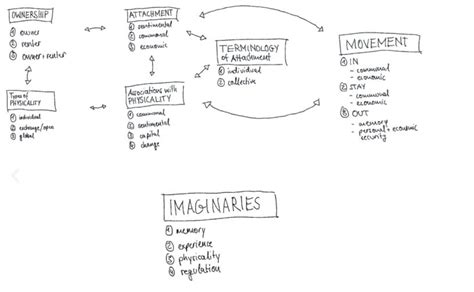 OWNERSHIP
① owner
② renter
③ owner + renter
ATTACHMENT
① sentimental
② communal
③ economic
TERMINOLOGY
of Attachment
① individual
② collective
MOVEMENT
① IN
- communal
- economic
② STAY
- communal
- economic
③ OUT
- memory
- personal + economic
security
Types of
PHYSICALITY
① individual
② exchange/open
③ global
Associations with
PHYSICALITY
① communal
② sentimental
③ capital
④ change
IMAGINARIES
① memory
② experience
③ physicality
④ regulation